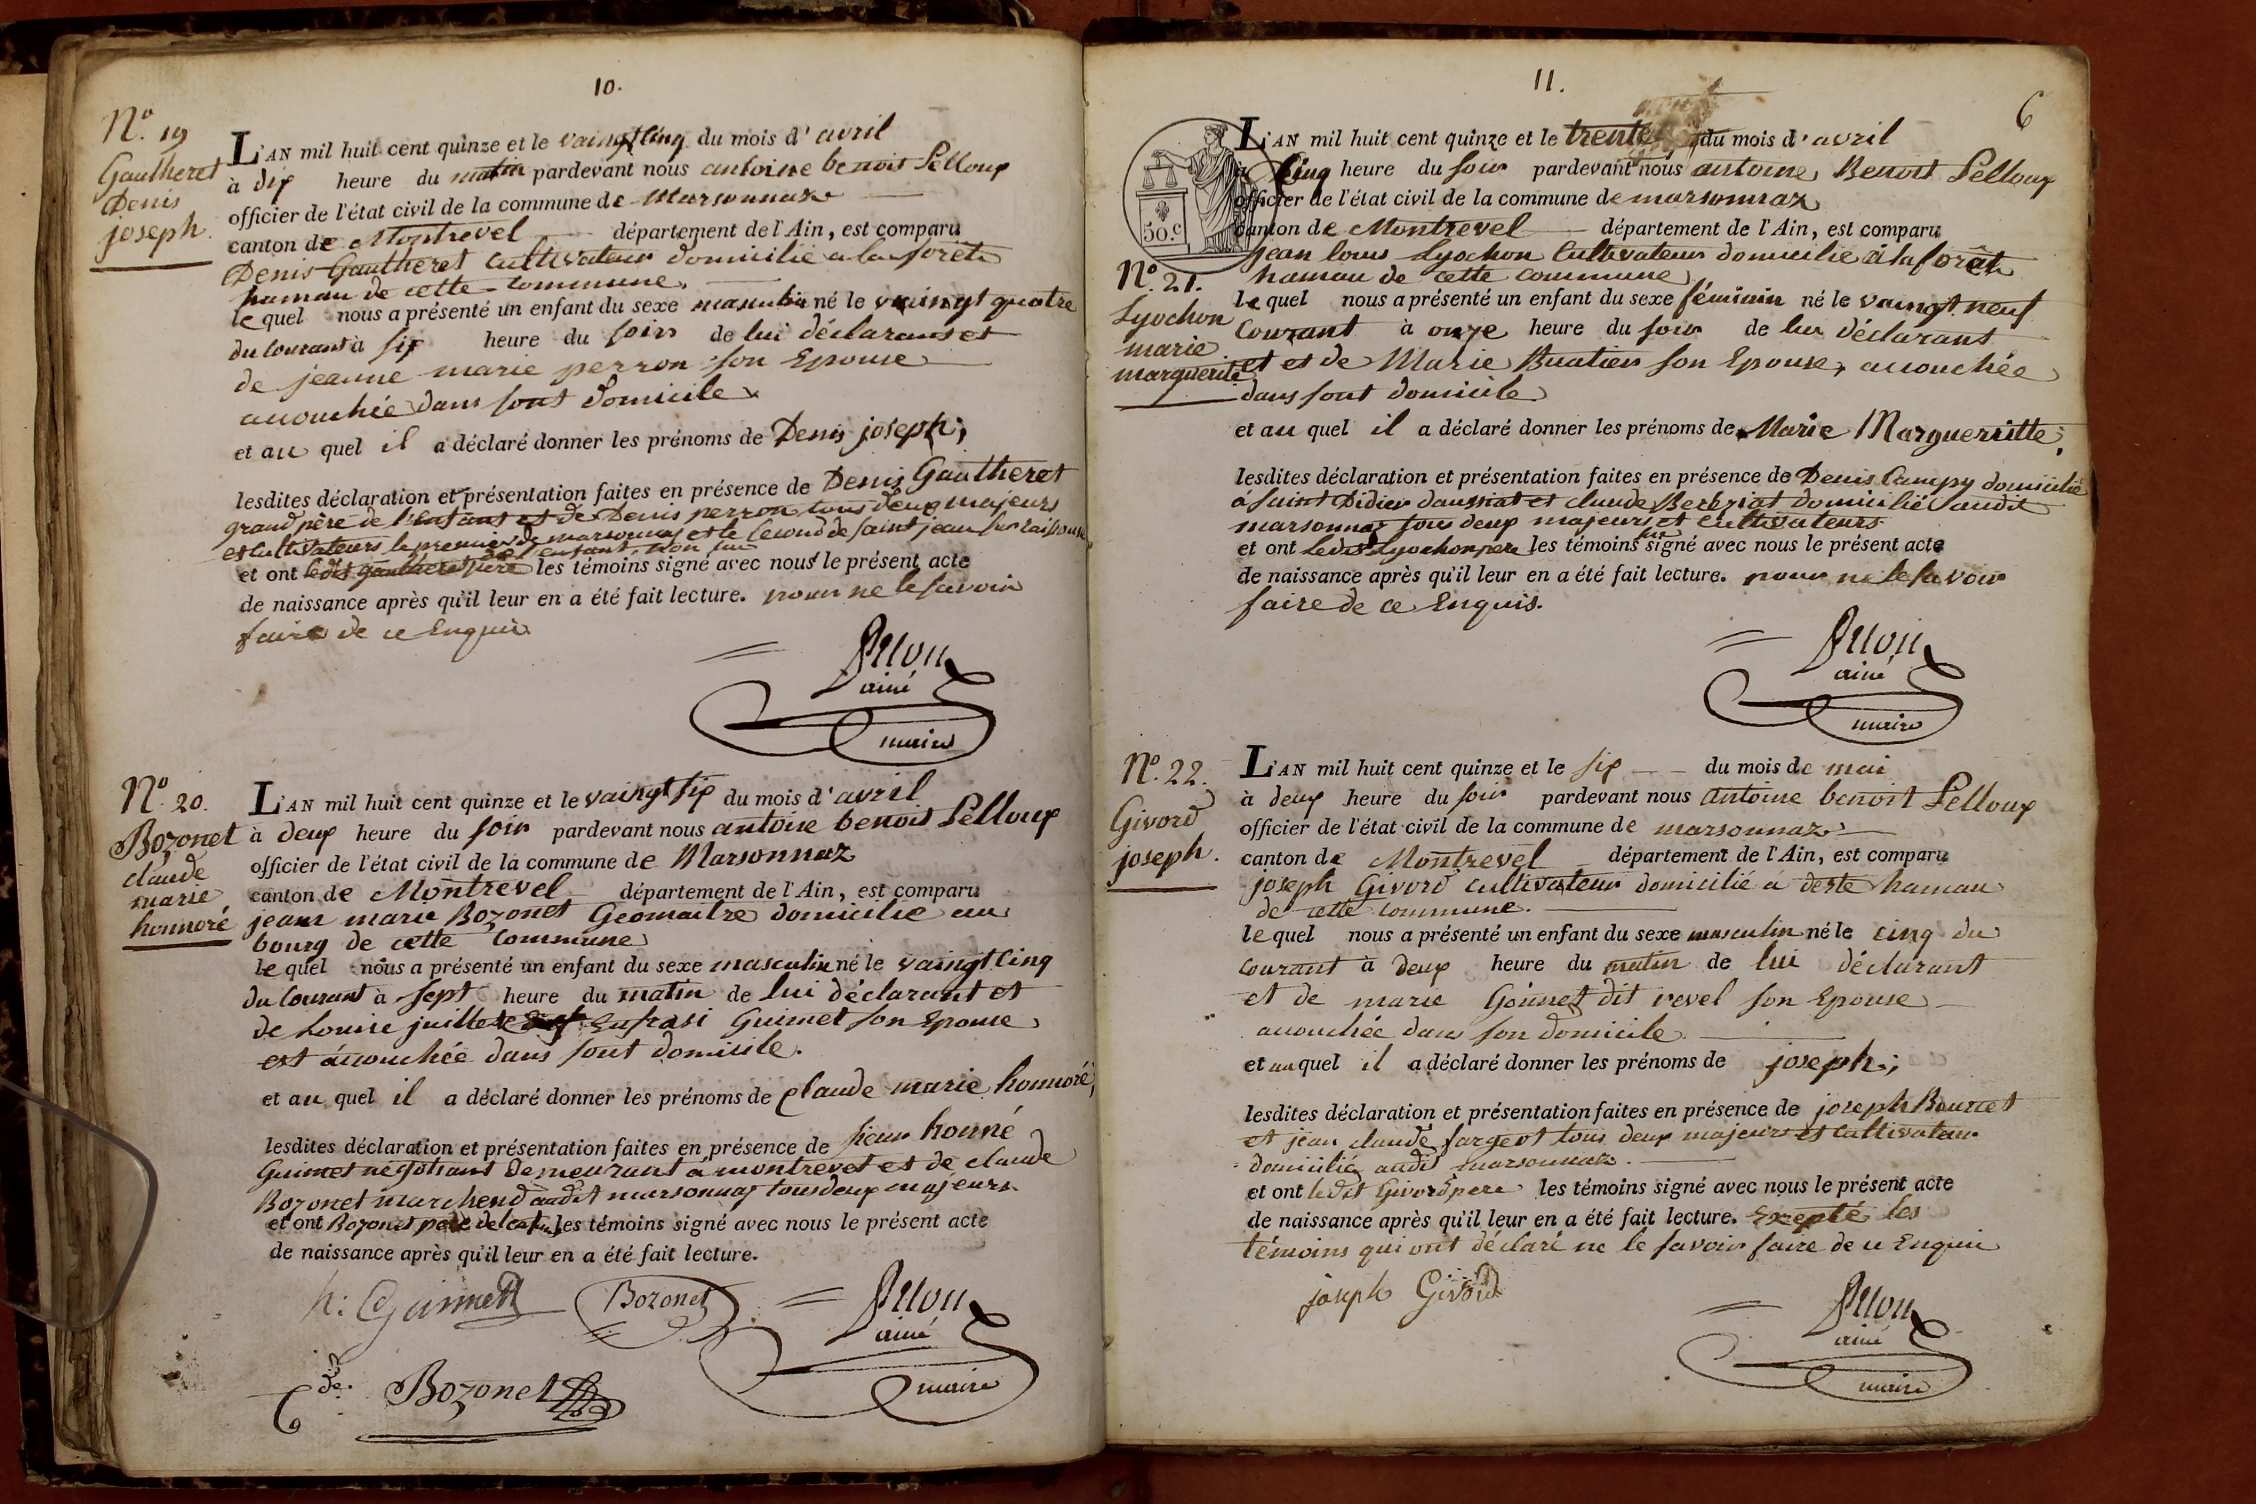 10.
N.º 19
Gautheret
Denis
joseph.
L'AN mil huit cent quinze et le vaingt cinq du mois d'avril
à dix heure du matin pardevant nous antoine benoit Pelloux
officier de l'état civil de la commune de Marsonnaz
canton de Montrevel département de l'Ain, est comparu
Denis Gautheret cultivateur domicilié a la forêt
hamau de cette commune,
le quel nous a présenté un enfant du sexe masculin né le vaingt quatre
du courant à six heure du soir de lui déclarant et
de jeanne marie perron son Epouse
accouchée dans sont domicile
et au quel il a déclaré donner les prénoms de Denis joseph;
lesdites déclaration et présentation faites en présence de Denis Gautheret
grand père de l'enfant et de Denis perron tous deux majeurs
et cultivateurs le premier de marsonnaz et le second de saint jean sur raissouse
de l'enfant, non
et ont ledit gautheret père les témoins signé avec nous le présent acte
de naissance après qu'il leur en a été fait lecture. pour ne le savoir
faire de ce Enquis
Pelloux
ainé
maire
N.º 20.
Bozonet
claude
marie
honnoré
L'AN mil huit cent quinze et le vaingt six du mois d'avril
à deux heure du soir pardevant nous antoine benoit Pelloux
officier de l'état civil de la commune de Marsonnaz
canton de Montrevel département de l'Ain, est comparu
jean marie Bozonet Geomaitre domicilié au
bourg de cette commune
le quel nous a présenté un enfant du sexe masculin né le vaingt cinq
du courant à sept heure du matin de lui déclarant et
de Louise juillete Eufrasi Guimet son Epouse
est accouchée dans sont domicile.
et au quel il a déclaré donner les prénoms de claude marie honnoré;
lesdites déclaration et présentation faites en présence de sieur honné
Guimet négotiant demeurant á montrevet et de claude
Bozonet marchend audit marsonnaz tous deux majeurs
et ont Bozonet père de l'enfant les témoins signé avec nous le présent acte
de naissance après qu'il leur en a été fait lecture.
h: Guimet Bozonet Pelloux
ainé
maire
Cde. Bozonet
11.
6
50.c
N.º 21.
Lyochon
marie
marguerite
L'AN mil huit cent quinze et le trente du mois d'avril
à cinq heure du soir pardevant nous antoine Benoit Pelloux
officier de l'état civil de la commune de marsonnaz
canton de Montrevel département de l'Ain, est comparu
jean louis Lyochon Cultivateur domicilié á la forêt
hamau de cette commune
le quel nous a présenté un enfant du sexe féminin né le vaingt neuf
Courant à onze heure du soir de lui déclarant
et et de Marie Buatier son Epouse, accouchée
dans sont domicile
et au quel il a déclaré donner les prénoms de Marie Marguerritte;
lesdites déclaration et présentation faites en présence de Denis Campy domicilié
á Saint Didier daussiat et claude Berbziat domicilié audit
marsonnaz tous deux majeurs et cultivateurs
et ont ledit Lyochon père les témoins signé avec nous le présent acte
de naissance après qu'il leur en a été fait lecture. pour ne le savoir
faire de ce Enquis.
Pelloux
ainé
maire
N.º 22.
Givord
joseph.
L'AN mil huit cent quinze et le six du mois de mai
à deux heure du soir pardevant nous antoine benoit Pelloux
officier de l'état civil de la commune de marsonnaz
canton de Montrevel département de l'Ain, est comparu
joseph Givord cultivateur domicilié á deste hamau
de cette commune.
le quel nous a présenté un enfant du sexe masculin né le cinq du
courant à deux heure du matin de lui déclarant
et de marie Gonnet dit revel son Epouse
accouchée dans son domicile
et au quel il a déclaré donner les prénoms de joseph;
lesdites déclaration et présentation faites en présence de joseph Bourcet
et jean claude fargeot tous deux majeurs et cultivateur
domicilié audit marsonnaz.
et ont ledit Givord pere les témoins signé avec nous le présent acte
de naissance après qu'il leur en a été fait lecture. Excepté les
témoins qui ont déclaré ne le savoir faire de ce Enquis
joseph Givord
Pelloux
ainé
maire